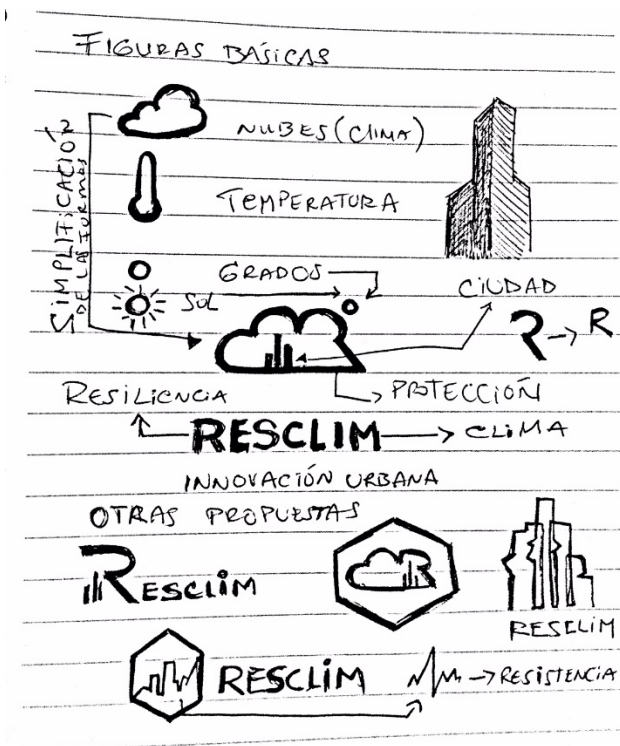 FIGURAS BÁSICAS
SIMPLIFICACIÓN
DE LAS FORMAS
NUBES (CLIMA)
TEMPERATURA
GRADOS
SOL
CIUDAD
R → R
RESILIENCIA
PROTECCIÓN
RESCLIM → CLIMA
INNOVACIÓN URBANA
OTRAS PROPUESTAS
RESCLIM
R
RESCLIM
RESCLIM
→ RESISTENCIA